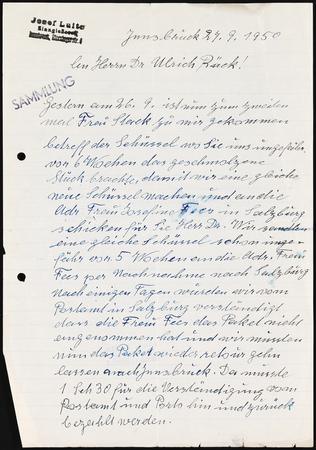 Josef Luitz
Innsbruck 27.9.1950
An Herrn Dr Ulrich Rück!
SAMMLUNG
Gestern am 26.9. ist nun zum zweiten
mal Frau Starck zu mir gekommen
betreff der Schüssel wo Sie uns ungefähr
vor 6 Wochen das geschmolzene
Stück brachte, damit wir eine gleiche
neue Schüssel machen und an die
Adr Frau Josefine Fees in Salzburg
schicken für Sie Herr Dr. Wir sandten
eine gleiche Schüssel schon unge-
fähr vor 5 Wochen an die Adr. Frau
Fees per Nachnahme nach Salzburg
Nach einigen Tagen wurden wir vom
Postamt in Salzburg verständigt
dass die Frau Fees das Paket nicht
angenommen hat und wir mussten
nun das Paket wieder retour gehn
lassen nach Innsbruck. Da musste
1 Sch 30 für die Verständigung vom
Postamt und Porto hin und zurück
bezahlt werden.